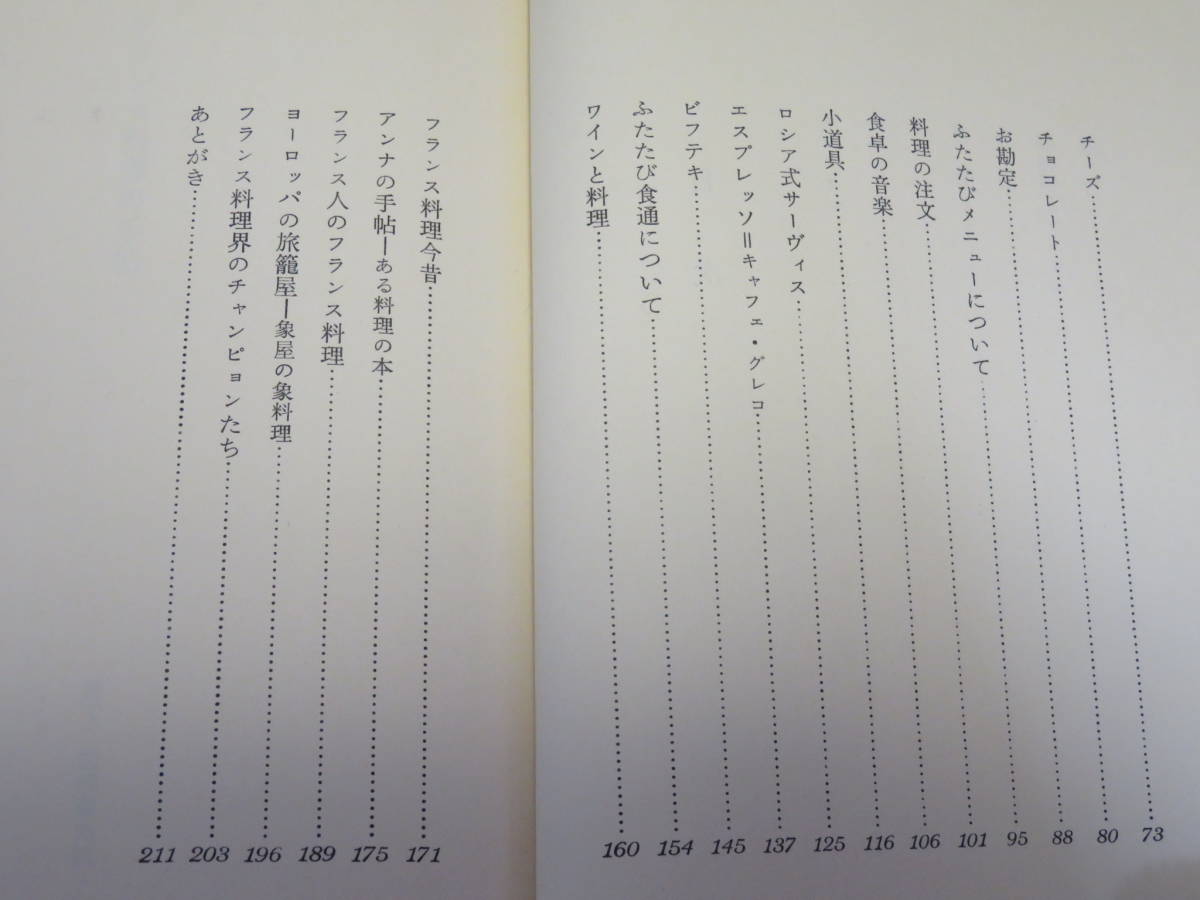 チーズ……73
チョコレート……80
お勘定……88
ふたたびメニューについて……95
料理の注文……101
食卓の音楽……106
小道具……116
ロシア式サーヴィス……125
エスプレッソ＝キャフェ・グレコ……137
ビフテキ……145
ふたたび食通について……154
ワインと料理……160
フランス料理今昔……171
アンナの手帖―ある料理の本……175
フランス人のフランス料理……189
ヨーロッパの旅籠屋―象屋の象料理……196
フランス料理界のチャンピョンたち……203
あとがき……211